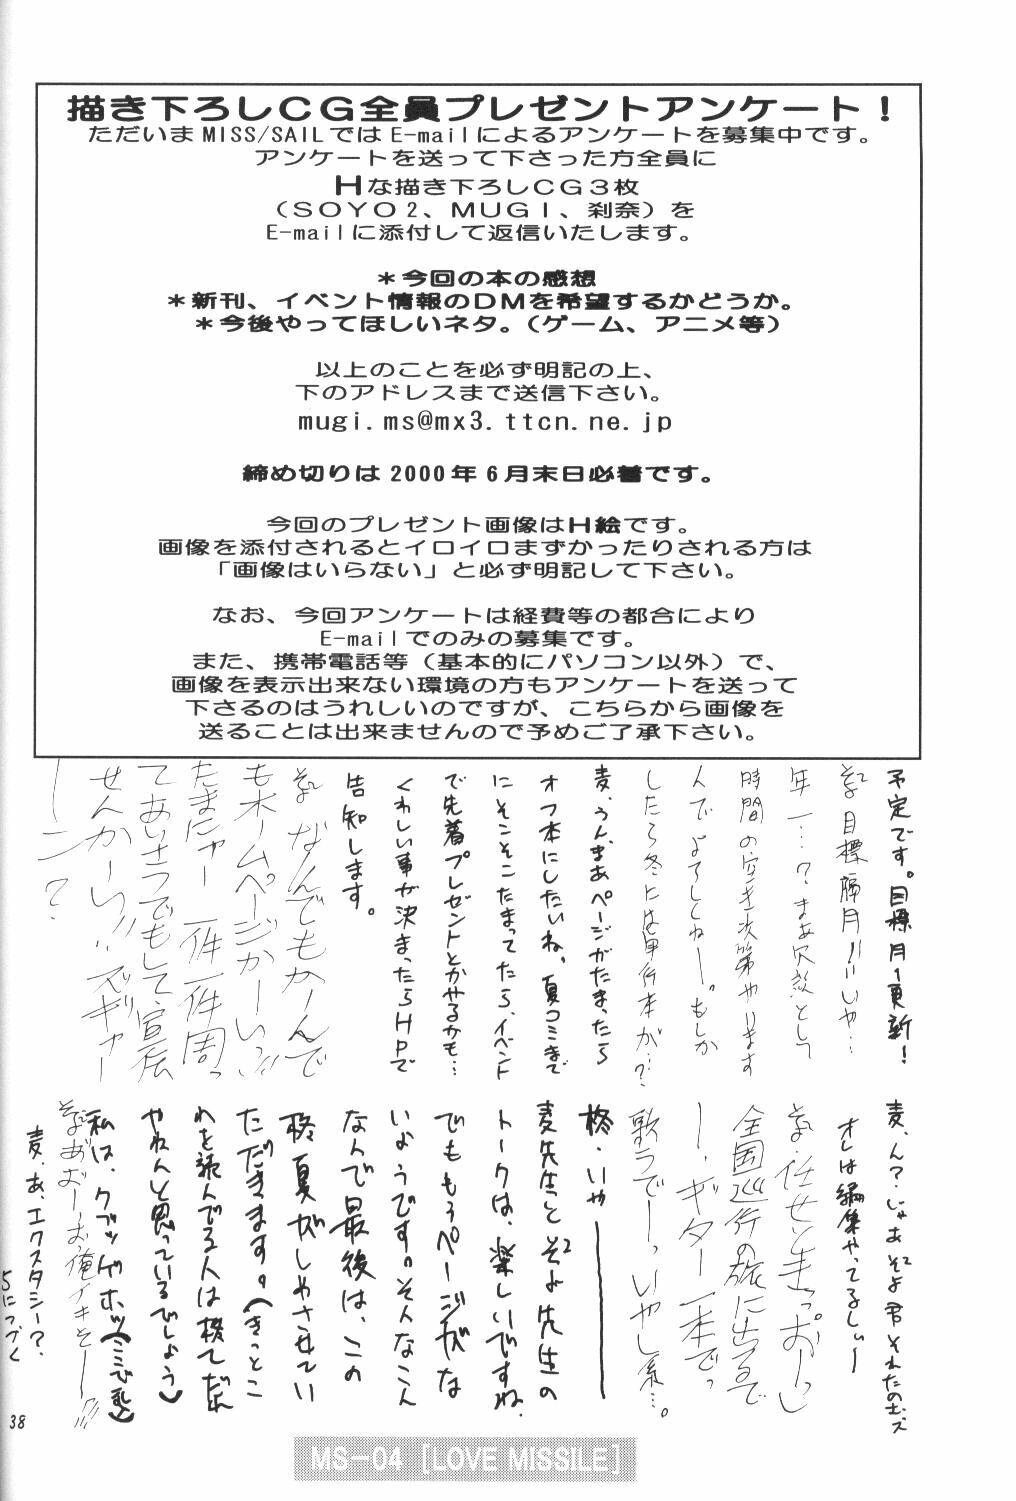 描き下ろしCG全員プレゼントアンケート！
ただいまMISS/SAILではE-mailによるアンケートを募集中です。
アンケートを送って下さった方全員に
Hな描き下ろしCG3枚
（SOYO2、MUGI、刹奈）を
E-mailに添付して返信いたします。
＊今回の本の感想
＊新刊、イベント情報のDMを希望するかどうか。
＊今後やってほしいネタ。（ゲーム、アニメ等）
以上のことを必ず明記の上、
下のアドレスまで送信下さい。
mugi.ms@mx3.ttcn.ne.jp
締め切りは2000年6月末日必着です。
今回のプレゼント画像はH絵です。
画像を添付されるとイロイロまずかったりされる方は
「画像はいらない」と必ず明記して下さい。
なお、今回アンケートは経費等の都合により
E-mailでのみの募集です。
また、携帯電話等（基本的にパソコン以外）で、
画像を表示出来ない環境の方もアンケートを送って
下さるのはうれしいのですが、こちらから画像を
送ることは出来ませんので予めご了承下さい。
予定です。目標月1更新！
そよ²目標隔月!!いや…
年一…？まあ冗談として
時間の空き次第やります
んでよろしくねー。もしか
したら冬には単行本が…？
麦、うん、まあページがたまったら
オフ本にしたいね。夏コミまで
にそこそこたまってたら、イベント
で先着プレゼントとかやるかも…
くわしい事が決まったらHPで
告知します。
そよ²なんでもかーんで
もホームページかーい!!
たまにゃー一件一件周っ
てあいさつでもして宣伝
せんかーい!!ズギャー
ーン？
麦、ん？じゃあそよ²君それたのむズ
オレは編集やってるしぃ〜
そよ²任せときっおーし
全国巡行の旅に出るで
ー、ギター一本でっ
歌うでーっいやし系…。
柊・いやー
麦先生とそよ²先生の
トークは、楽しいですね。
でももうページがな
いようです。そんなこん
なんで最後は、この
柊夏がしめさせてい
ただきます。（きっとこ
れを読んでる人は柊てだれ
やねんと思っているでしょう）
私は、クブッゲホッ（ここで乱）
そよ²あおーっお、俺イキそーー!!!
麦、あ、エクスタシー？
5につづく
38
MS-04 [LOVE MISSILE]